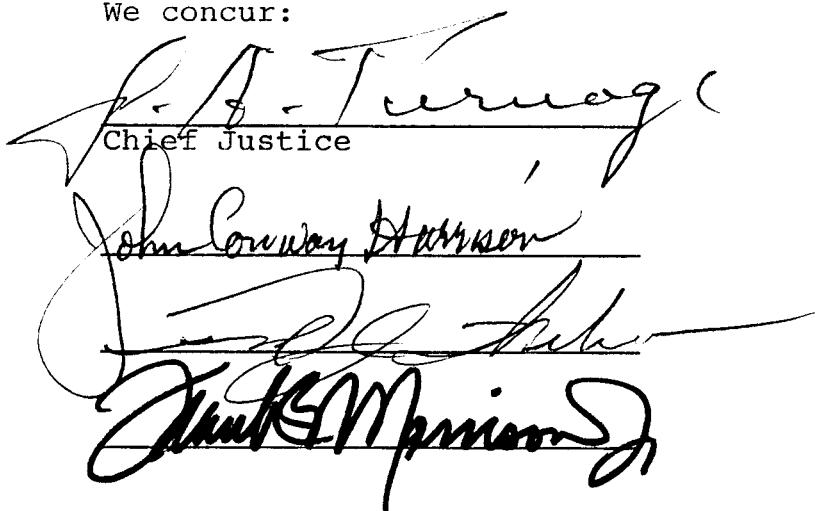 We concur:
J. A. Turnage
Chief Justice
John Conway Harrison
Frank B. Morrison Jr